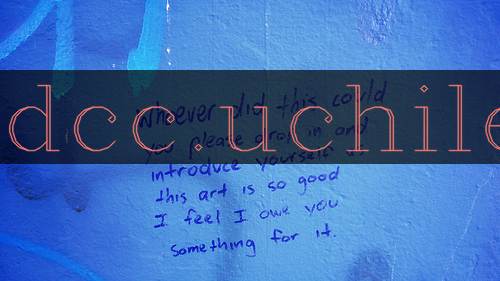 dcc.uchile
Whoever did this could
you please drop in and
introduce yourself
this art is so good
I feel I owe you
something for it.